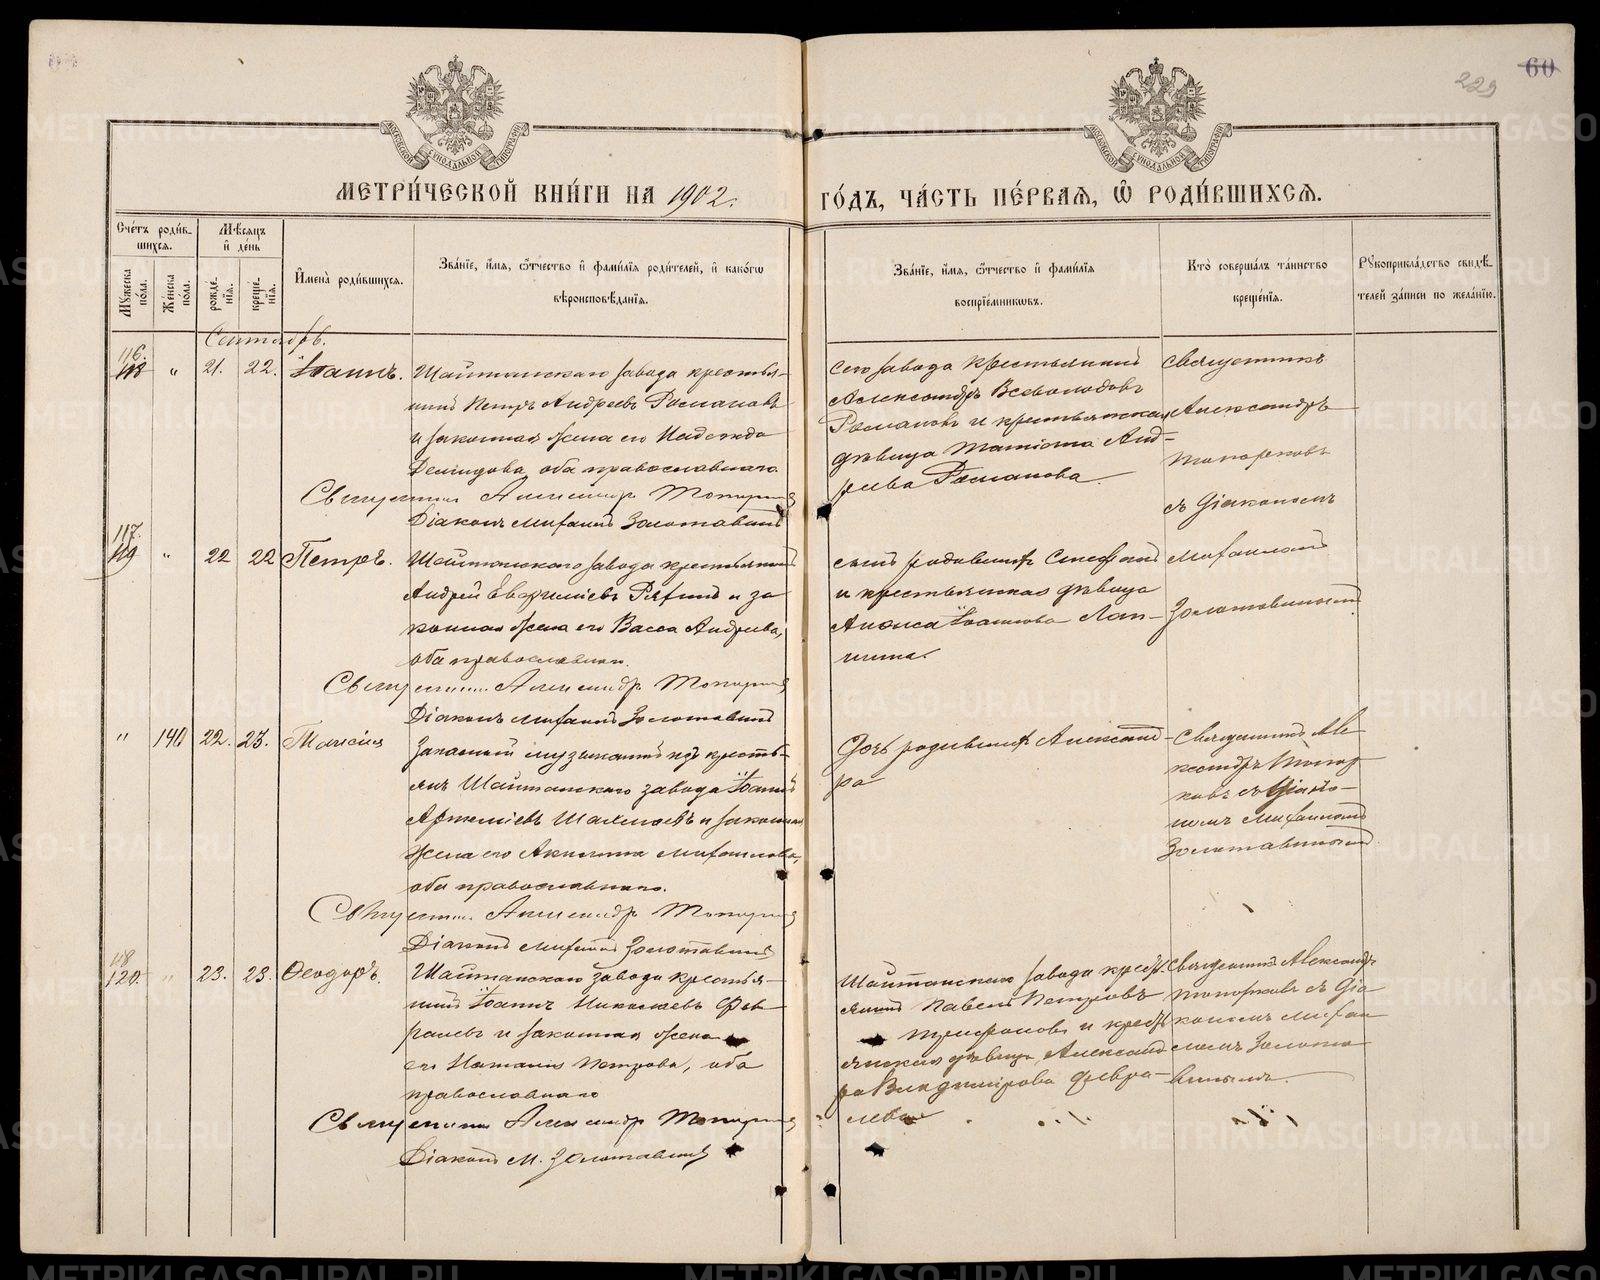 229
60
МЕТРИ́ЧЕСКОЙ КНИ́ГИ НА 1902.
ГО́ДЪ, ЧА́СТЬ ПЕ́РВАЯ, Ѽ РОДИ́ВШИХСЯ.
Сче́тъ роди́в-
шихся.
Мѣсяцъ
и де́нь
Мꙋжеска по́ла.
Же́нска пола.
рожде́-
нїя.
креще́-
нїя.
И҆мена̀ роди́вшихся.
Зва́нїе, и҆́мя, ѻ҆́тчество и҆ фами́лїя роди́телей, и҆ како́гѡ
вѣроисповѣ́данїя.
Зва́нїе, и҆́мя, ѻ҆́тчество и҆ фами́лїя
воспрїе́мникѡвъ.
Кто̀ соверша́лъ та́инство
креще́нїя.
Рꙋкоприкла́дство свидѣ́-
телей за́писи по жела́нїю.
Сентябрь.
116.
118 " 21. 22. Іоаннъ.
Шайтанскаго завода крестья-
нинъ Петръ Андреевъ Романовъ
и законная жена его Надежда
Демидова, оба православнаго.
Священникъ Александръ Топорковъ
Діаконъ Михаилъ Золотавинъ
сего завода крестьянинъ
Александръ Всеволодовъ
Романовъ и крестьянская
дѣвица Татіана Анд-
реева Романова.
Священникъ
Александръ
Топорковъ
съ діакономъ
117.
119 " 22 22 Петръ.
Шайтанскаго завода крестьянинъ
Андрей Евфиміевъ и за
конная жена его Васса Андреева,
оба православнаго.
Священникъ Александръ Топорковъ
Діаконъ Михаилъ Золотавинъ
сынъ родившихъ Стефанъ
и крестьянская дѣвица
Анисія Іоаннова Лап-
шина.
Михаиломъ
Золотавинымъ
" 140 22. 23. Таисія
Запасный музыкантъ изъ кресть-
янъ Шайтанскаго завода Іоаннъ
Артеміевъ и законная
жена его Акилина Михаилова,
оба православнаго.
Священникъ Александръ Топорковъ
Діаконъ Михаилъ Золотавинъ
Дочь родившихъ Александ-
ра
Священникъ Але
ксандръ Топор
ковъ съ діако-
номъ Михаиломъ
Золотавинымъ
118
120. " 23. 23. Ѳеодоръ.
Шайтанскаго завода крестья-
нинъ Іоаннъ Николаевъ Фев
ралевъ и законная жена
его Наталія Петрова, оба
православнаго
Священникъ Александръ Топорковъ
Діаконъ М. Золотавинъ
Шайтанскаго завода крест
янинъ Павелъ Петровъ
Трифоновъ и крест
янская дѣвица Александ
ра Владимірова Февра-
лева
Священникъ Александръ
Топорковъ съ діа
кономъ Михаи
ломъ Золота
винымъ.
METRIKI.GASO-URAL.RU